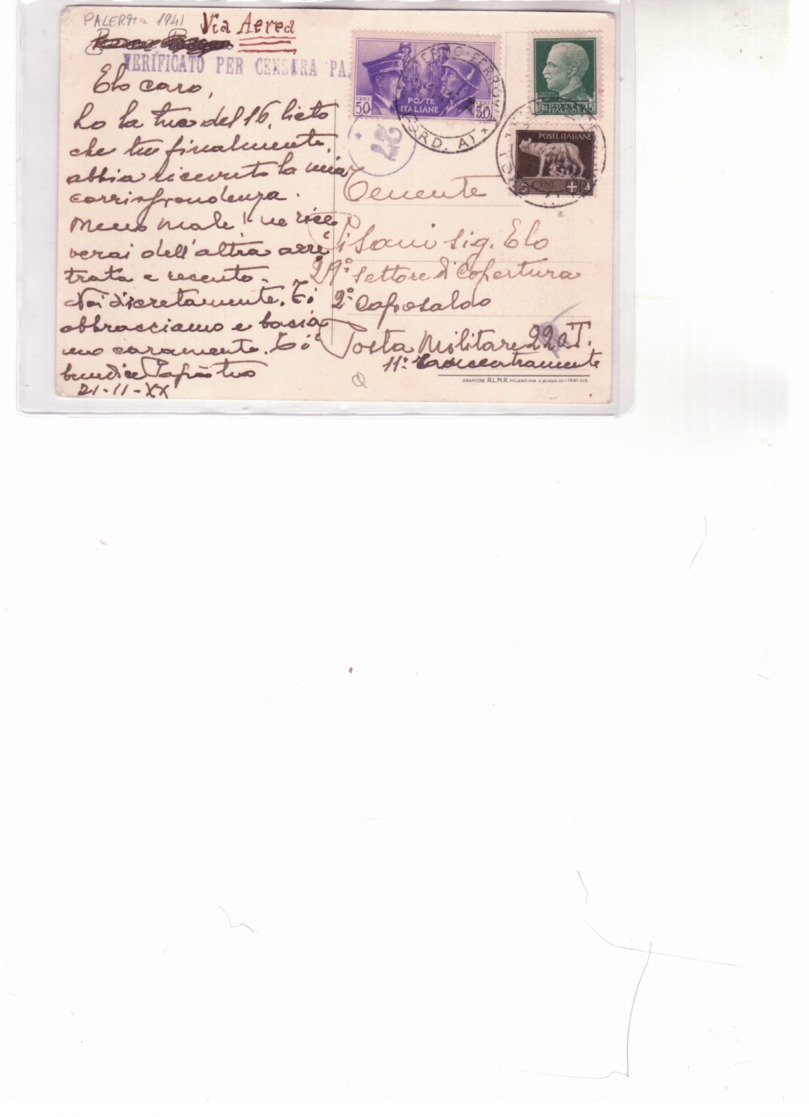 PALERMO 1941 Via Aerea
VERIFICATO PER CENSURA PA.
Elo caro,
ho la tua del 16, lieto
che tu finalmente
abbia ricevuto la mia
corrispondenza.
Meno male! ne rice
verai dell'altra arre
trata e recente.
Noi discretamente. Ti
abbracciamo e bacia
mo caramente. Ti
benedice Papà tuo
21-11-XX
CENT 50
POSTE
ITALIANE
CENT 50
FERROVIA
(CORR. ORD. A)
25
POSTE ITALIANE
Tenente
Pisani sig. Elo
29° Settore di Copertura
2° Caposaldo
Posta Militare 220 T.
11° 
GRAFICHE AL.MA. MILANO